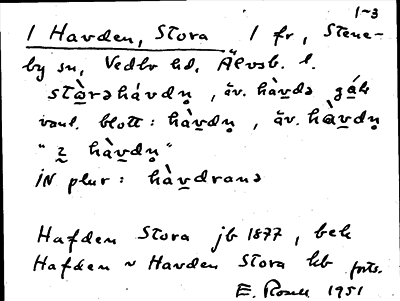 1-3
1 Havden, Stora 1 fr, Stene-
by sn, Vedbo hd, Älvsb. l.
stɑ̀rəhávdn̥, äv. hàvdə gɑ́lı
vanl. blott: hàvdn̥, äv. hɑ̀vdn̥
" 2 hàvdn̥"
iN plur: hàvdranə
Hafden Stora jb 1877, bek
Hafden ~ Havden Stora kb forts.
E. 1951